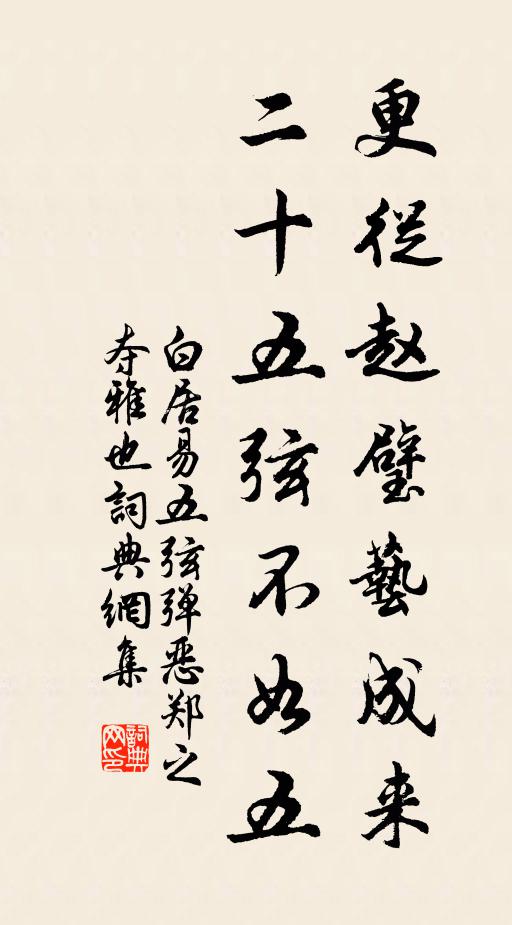 更從赵璧藝成来
二十五弦不如五
白居易五弦弹恶郑之
夺雅也詞典網集
詞典网印